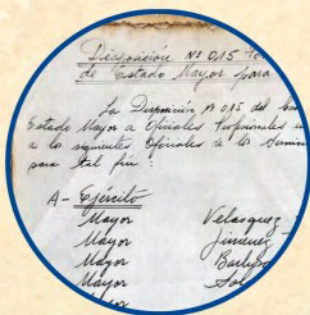 Disposición Nº 015
de Estado Mayor para
La Disposición Nº 015 del
Estado Mayor a Oficiales Profesionales
a los siguientes Oficiales de los
para tal fin :
A- Ejército
Mayor Velasquez
Mayor Jimenez
Mayor
Mayor